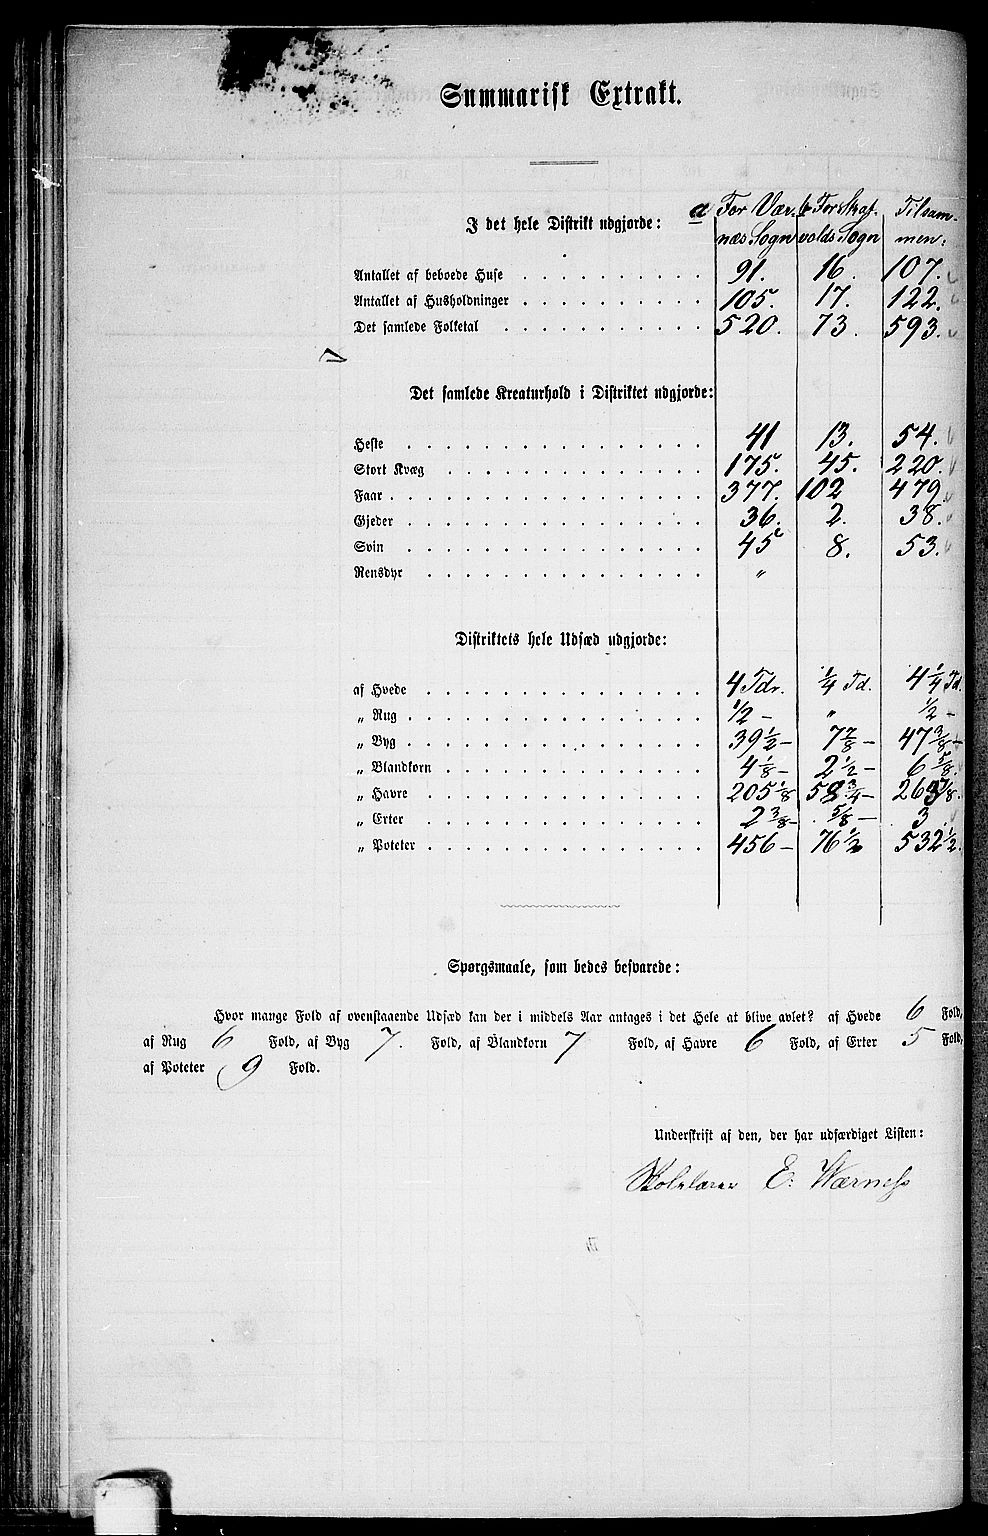 Summarisk Extrakt.
I det hele Distrikt udgjorde: a For Vær- b For Skat- Tilsam-
næs Sogn valds Sogn men:
Antallet af beboede Huse . . . . . . . . . . 91. 16. 107.
Antallet af Husholdninger . . . . . . . . . . 105. 17. 122.
Det samlede Folketal . . . . . . . . . . . 520. 73. 593.
Det samlede Kreaturhold i Distriktet udgjorde:
Heste . . . . . . . . . . . . . . . . 41 13. 54.
Stort Kvæg . . . . . . . . . . . . . . 175. 45. 220.
Faar . . . . . . . . . . . . . . . . . 377. 102 479
Gjeder . . . . . . . . . . . . . . . . 36. 2. 38.
Svin . . . . . . . . . . . . . . . . 45 8. 53.
Rensdyr . . . . . . . . . . . . . . . "
Distriktets hele Udsæd udgjorde:
af Hvede . . . . . . . . . . . . . . . 4 Tdr. 1/4 Td. 4 1/4 Td.
„ Rug . . . . . . . . . . . . . . . . 1/2 - " 1/2 -
„ Byg . . . . . . . . . . . . . . . . 39 1/2 - 7 7/8 - 47 3/8 -
„ Blandkorn . . . . . . . . . . . . . . 4 1/8 - 2 1/2 - 6 5/8.
„ Havre . . . . . . . . . . . . . . . 205 1/8 58 3/4 - 263 7/8.
„ Erter . . . . . . . . . . . . . . . 2 3/8 - 5/8 - 3.
„ Poteter . . . . . . . . . . . . . . . 456 - 76 1/2 532 1/2.
Spørgsmaale, som bedes besvarede:
Hvor mange Fold af ovenstaaende Udsæd kan der i middels Aar antages i det Hele at blive avlet? af Hvede 6 Fold,
af Rug 6 Fold, af Byg 7. Fold, af Blandkorn 7 Fold, af Havre 6 Fold, af Erter 5 Fold,
af Poteter 9 Fold.
Underskrift af den, der har udfærdiget Listen:
Skolelærer E. Wærness